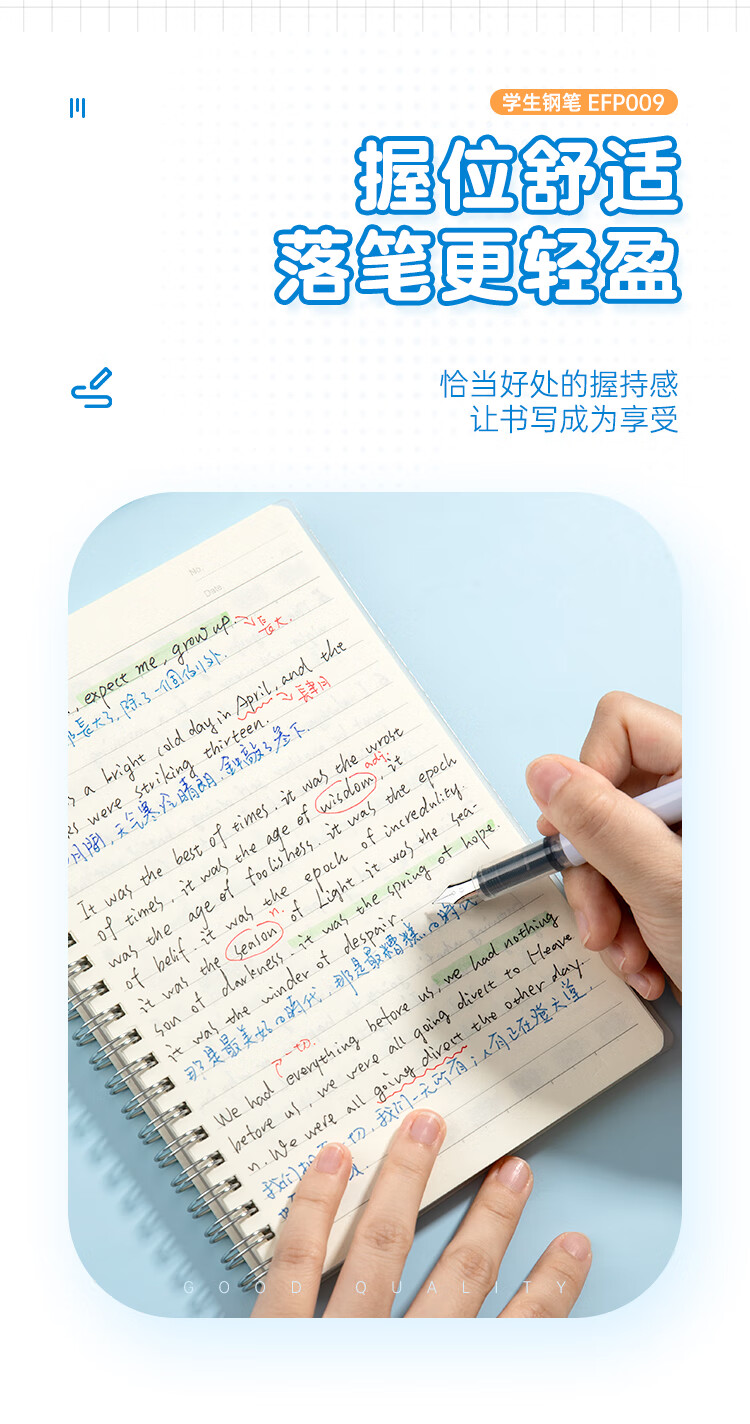 学生钢笔 EFP009
握位舒适
落笔更轻盈
恰当好处的握持感
让书写成为享受
No.
Date
expect me, grow up. 長大.
長大了, 除了一個例外.
a bright cold day in April, and the
肆月
were striking thirteen.
月間, 天气寒冷晴朗, 鐘敲了叁下.
It was the best of times, it was the wrost
adj.
of times, it was the age of wisdom, it
was the age of foolishess, it was the epoch
of belif, it was the epoch of incredulity.
n.
it was the sealon of Light, it was the sea-
son of darkness, it was the spring of hope.
it was the winder of despair.
那是最美好的時代, 那是最糟糕的時代
一切.
We had everything before us, we had nothing
before us, we were all going direct to Heave
n. We were all going direct the other day.
我們 一切, 我們一无所有; 人们正在登天堂,
GOOD QUALITY